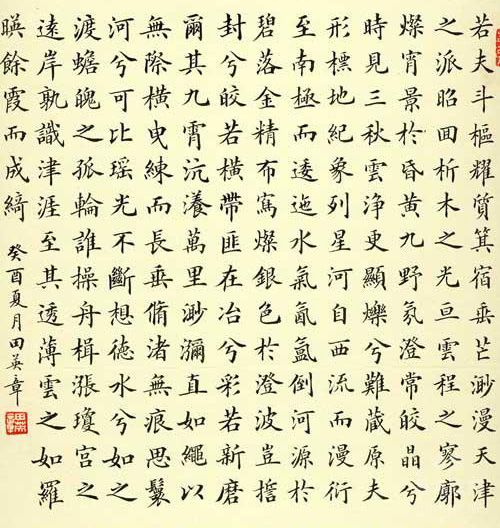 若夫斗樞耀質箕宿垂芒渺漫天津
之派昭囬析木之光亘雲程之寥廓
燦宵景於昏黄九野氛澄常皎晶兮
時見三秋雲浄更顯爍兮難蔵原夫
形標地紀象列星河自西流而漫衍
至南極而逶迤水氣氤氲倒河源於
碧落金精布寫燦銀色於澄波豈
封兮皎若橫帶匪在冶兮彩若新磨
爾其九霄沆瀁萬里渺瀰直如繩以
無際橫曳練而長垂脩渚無痕思鬟
河兮可比瑶光不斷想德水兮如之
渡蟾魄之孤輪誰操舟楫漲瓊宮之
遠岸孰識津涯至其透薄雲之如羅
暎餘霞而成綺
癸酉夏月田英章